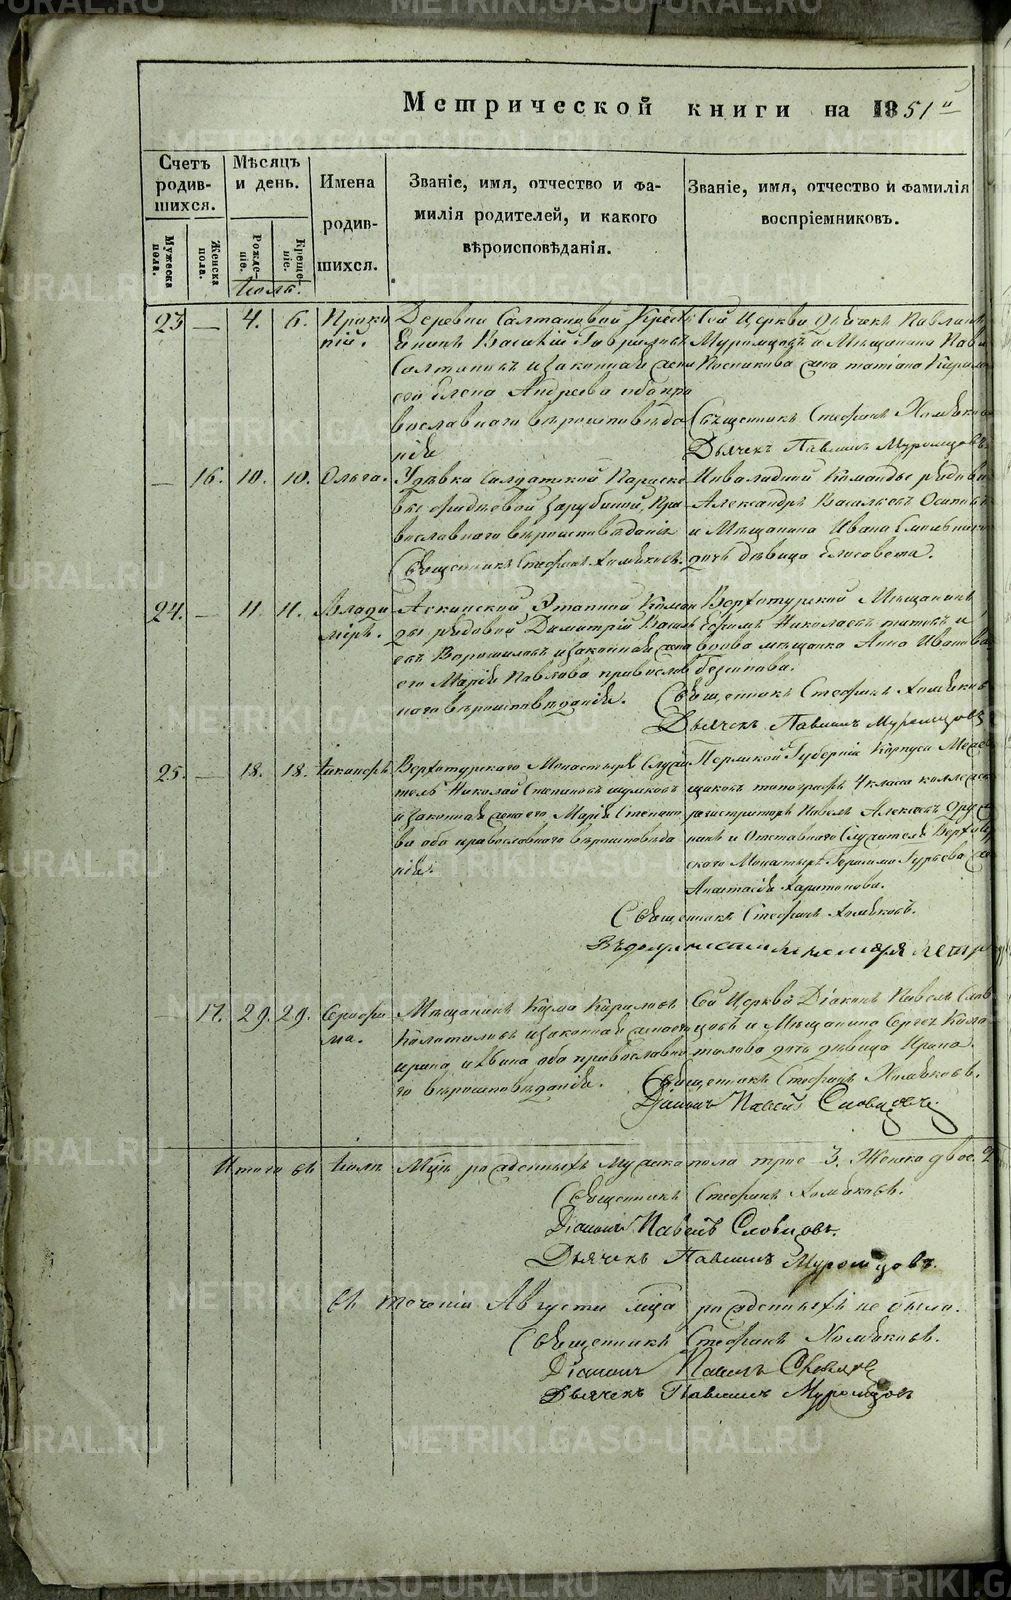 METRIKI.GASO-URAL.RU
Метрической книги на 1851й
Счетъ родив-шихся.
Мѣсяцъ и день.
Имена родив-шихся.
Званіе, имя, отчество и фа-
милія родителей, и какого
вѣроисповѣданія.
Званіе, имя, отчество и фамилія
воспріемниковъ.
Мужеска пола.
Женска пола.
Рожде-ніе.
Креще-ніе.
Іюль.
23 — 4. 6. Прокопій.
Деревни Салтановой Кресть
янинъ Василій Гавриловъ
Салтановъ и законная жена
его Елена Андреева оба пра
вославнаго вѣроисповѣда
нія
Сей Церкви Дьячекъ Павлинъ
Муромцовъ и Мѣщанина
жена Татіана
Священникъ Стефанъ Хомяковъ
Дьячекъ Павлинъ Муромцовъ.
— 16. 10. 10. Ольга.
У вдовы Салдатской Параске
вы Зарубиной, Пра
вославнаго вѣроисповѣданія
Священникъ Стефанъ Хомяковъ.
Инвалидной Команды рядовой
Александръ Васильевъ Осиповъ
и Мѣщанина Ивана
дочь дѣвица Елисавета.
24. — 11. 11. Влади
міръ.
Этапной Коман
ды рядовой Димитрій Василь
евъ Ворошиловъ и законная жена
его Марія Павлова православ
наго вѣроисповѣданія.
Верхотурской Мѣщанинъ
Ефимъ Николаевъ и
вдова мѣщанка Анна Иванова
Священникъ Стефанъ Хомяковъ
Дьячекъ Павлинъ Муромцовъ
25. — 18. 18. Никаноръ
Верхотурскаго Монастыря Служи
тель Николай Степановъ Шумковъ
и законная жена его Марія Степано
ва оба православнаго вѣроисповѣда
нія.
Пермской Губерніи Корпуса Межев
щиковъ топографъ 4 класа коллежск
регистраторъ Павелъ Алексѣевъ
и Отставнаго Служителя Верхотур
скаго Монастыря Герасима Гурьева жена
Анастасія Харитонова.
Священникъ Стефанъ Хомяковъ.
— 17. 29. 29. Серафи
ма.
Мѣщанинъ Козма Кириловъ
Колотиловъ и законная жена его
Ирина Ивановна оба православна
го вѣроисповѣданія.
Сей Церкви Діаконъ Павелъ Слов
цовъ и Мѣщанина Сергея Коло
тилова дочь дѣвица Ирина.
Священникъ Стефанъ Хомяковъ.
Діаконъ Павелъ Словцовъ.
Итого въ Іюлѣ Мцѣ рожденныхъ Мужеска пола трое 3. Женска двое. 2
Священникъ Стефанъ Хомяковъ.
Діаконъ Павелъ Словцовъ.
Дьячекъ Павлинъ Муромцовъ.
Въ теченіи Августа мца рожденныхъ не было.
Священникъ Стефанъ Хомяковъ.
Діаконъ Павелъ Словцовъ
Дьячекъ Павлинъ Муромцовъ